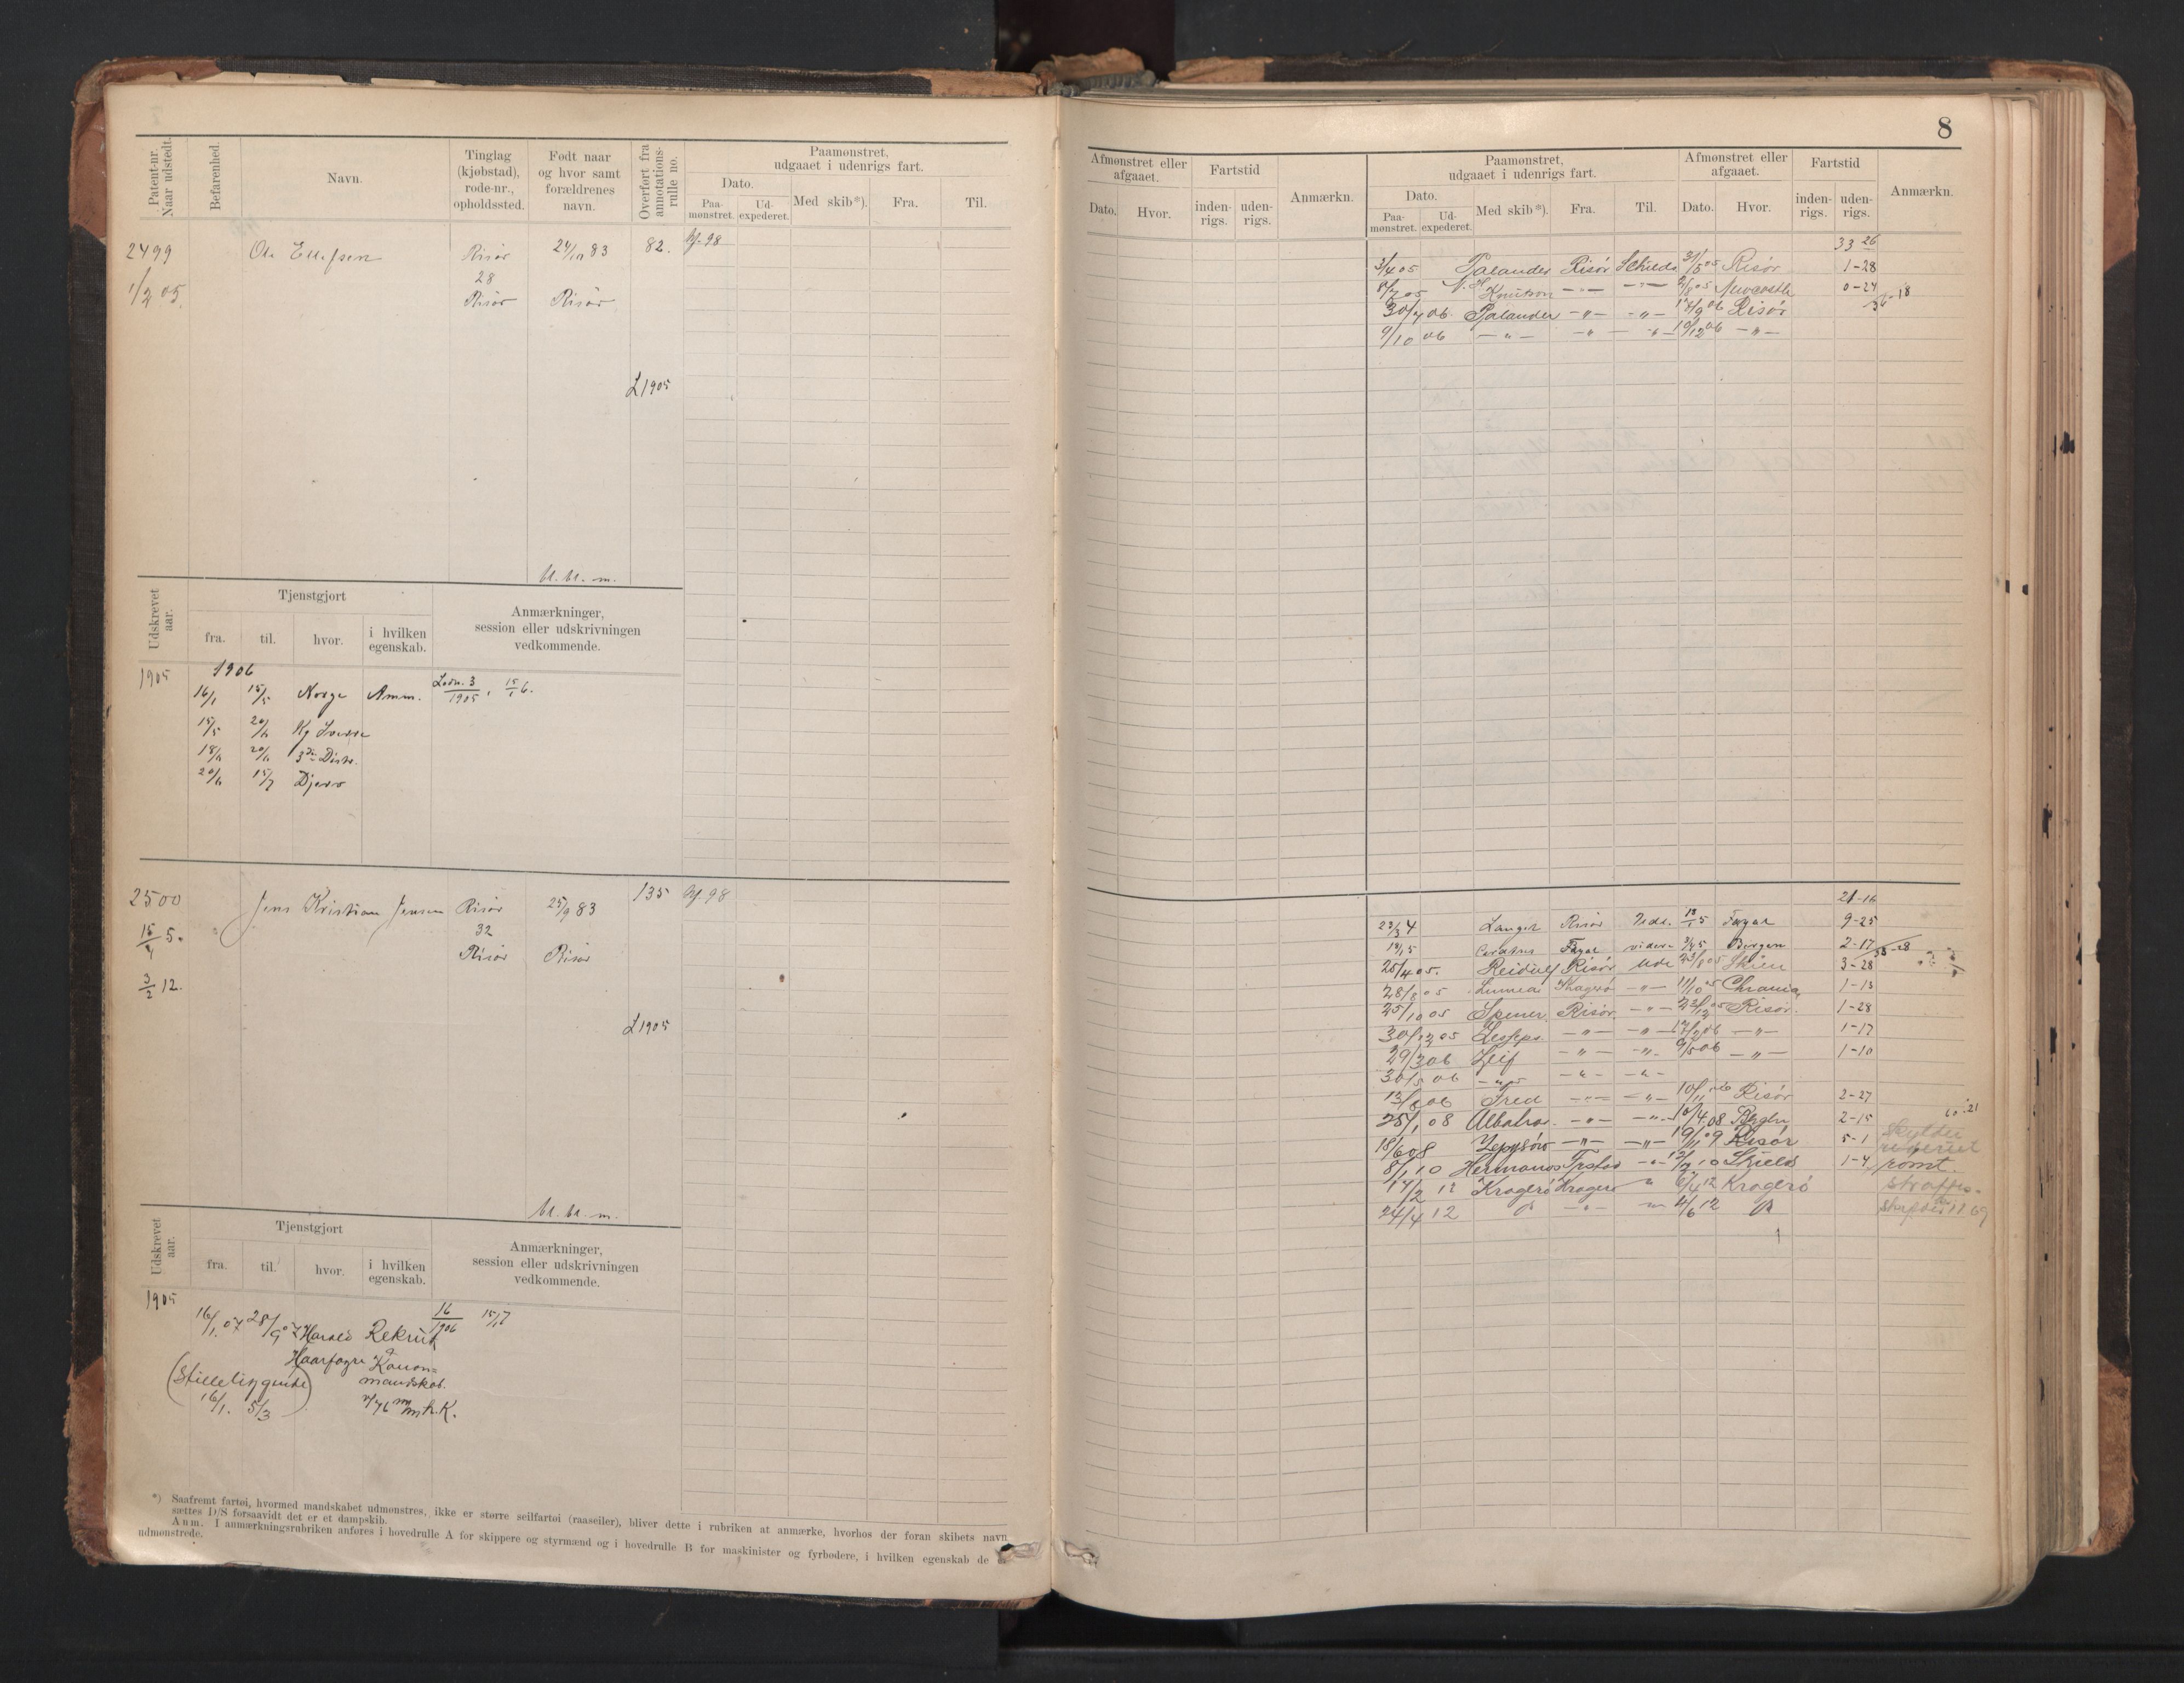 8
Patent-nr. Naar udstedt.
Befarenhed.
Navn.
Tinglag (kjøbstad), rode-nr., opholdssted.
Født naar og hvor samt forældrenes navn.
Overført fra annotations-rulle no.
Paamønstret, udgaaet i udenrigs fart.
Dato.
Paa-mønstret.
Ud-expederet.
Med skib*).
Fra.
Til.
2499
1/2 05.
Ole Ellefsen
Risør
28
Risør
24/10 83
Risør
82.
98
L 1905
bl. bl. m.
Udskrevet aar.
Tjenstgjort
fra.
til.
hvor.
i hvilken egenskab.
Anmærkninger, session eller udskrivningen vedkommende.
1905
1906
16/1 15/5 Norge Amm.
3/1905, 15/1 6.
15/5 20/6 Kg Sverre
18/6 20/6 3die Distr.
20/6 15/7 Djerv
2500
15/4 5.
3/2 12.
Jens Kristian Jensen
Risør
32
Risør
25/9 83
Risør
135
98
L 1905
bl. bl. m.
Udskrevet aar.
Tjenstgjort
fra.
til.
hvor.
i hvilken egenskab.
Anmærkninger, session eller udskrivningen vedkommende.
1905
16/1 07 28/9 07 Harald Rekrut
16/1906 15/1 7
Haarfagre Kanon=
(Stilleliggende) mandskab.
16/1. 5/3 v/76 mm h.K.
*) Saafremt fartøi, hvormed mandskabet udmønstres, ikke er større seilfartøi (raaseiler), bliver dette i rubriken at anmærke, hvorhos der foran skibets navn
sættes D/S forsaavidt det er et dampskib.
Anm. I anmærkningsrubriken anføres i hovedrulle A for skippere og styrmænd og i hovedrulle B for maskinister og fyrbødere, i hvilken egenskab de er
udmønstrede.
Afmønstret eller afgaaet.
Dato.
Hvor.
Fartstid
inden-rigs.
uden-rigs.
Anmærkn.
Paamønstret, udgaaet i udenrigs fart.
Dato.
Paa-mønstret.
Ud-expederet.
Med skib*).
Fra.
Til.
Afmønstret eller afgaaet.
Dato.
Hvor.
Fartstid
inden-rigs.
uden-rigs.
Anmærkn.
33 26
3/4 05 Palander Risør Schields 31/5 05 Risør 1-28
8/7 05 Knutson -"- -"- 2/8 05 Newcastle 0-24
36-18
30/7 06. Palander -"- -"- 18/9 06 Risør
9/10 06 -"- -"- -"- 10/12 06 -"-
21-16
23/3 4 Langet Risør Ude. 18/1 5 Fayal 9-25
18/1 5 Fayal videre 3/4 5 Bergen 2-17
25/4 05. Reidulf Risør Ude 23/8 05 Skien 3-28
28/8 05 Linnea Kragerø -"- 11/10 05 Chrania 1-13
25/10 05 Spener Risør -"- 23/12 05 Risør. 1-28
30/12 05 Lesseps. -"- -"- 17/2 06 -"- 1-17
29/3 06 Leif -"- -"- 9/5 06 -"- 1-10
30/5 06 -"- -"- -"-
13/8 06 Fred -"- -"- 10/11 06 Risør 2-27
25/1 08 Albatros -"- -"- 10/4 08 Bergen 2-15
60-21
18/6 08 -"- -"- 19/11 09 Risør 5-1
8/1 10 Hermanos -"- 12/2 10 Skields 1-4
rømt.
17/2 12 Kragerø Kragerø " 6/4 12 Kragerø
24/4 12 -"- 4/6 12